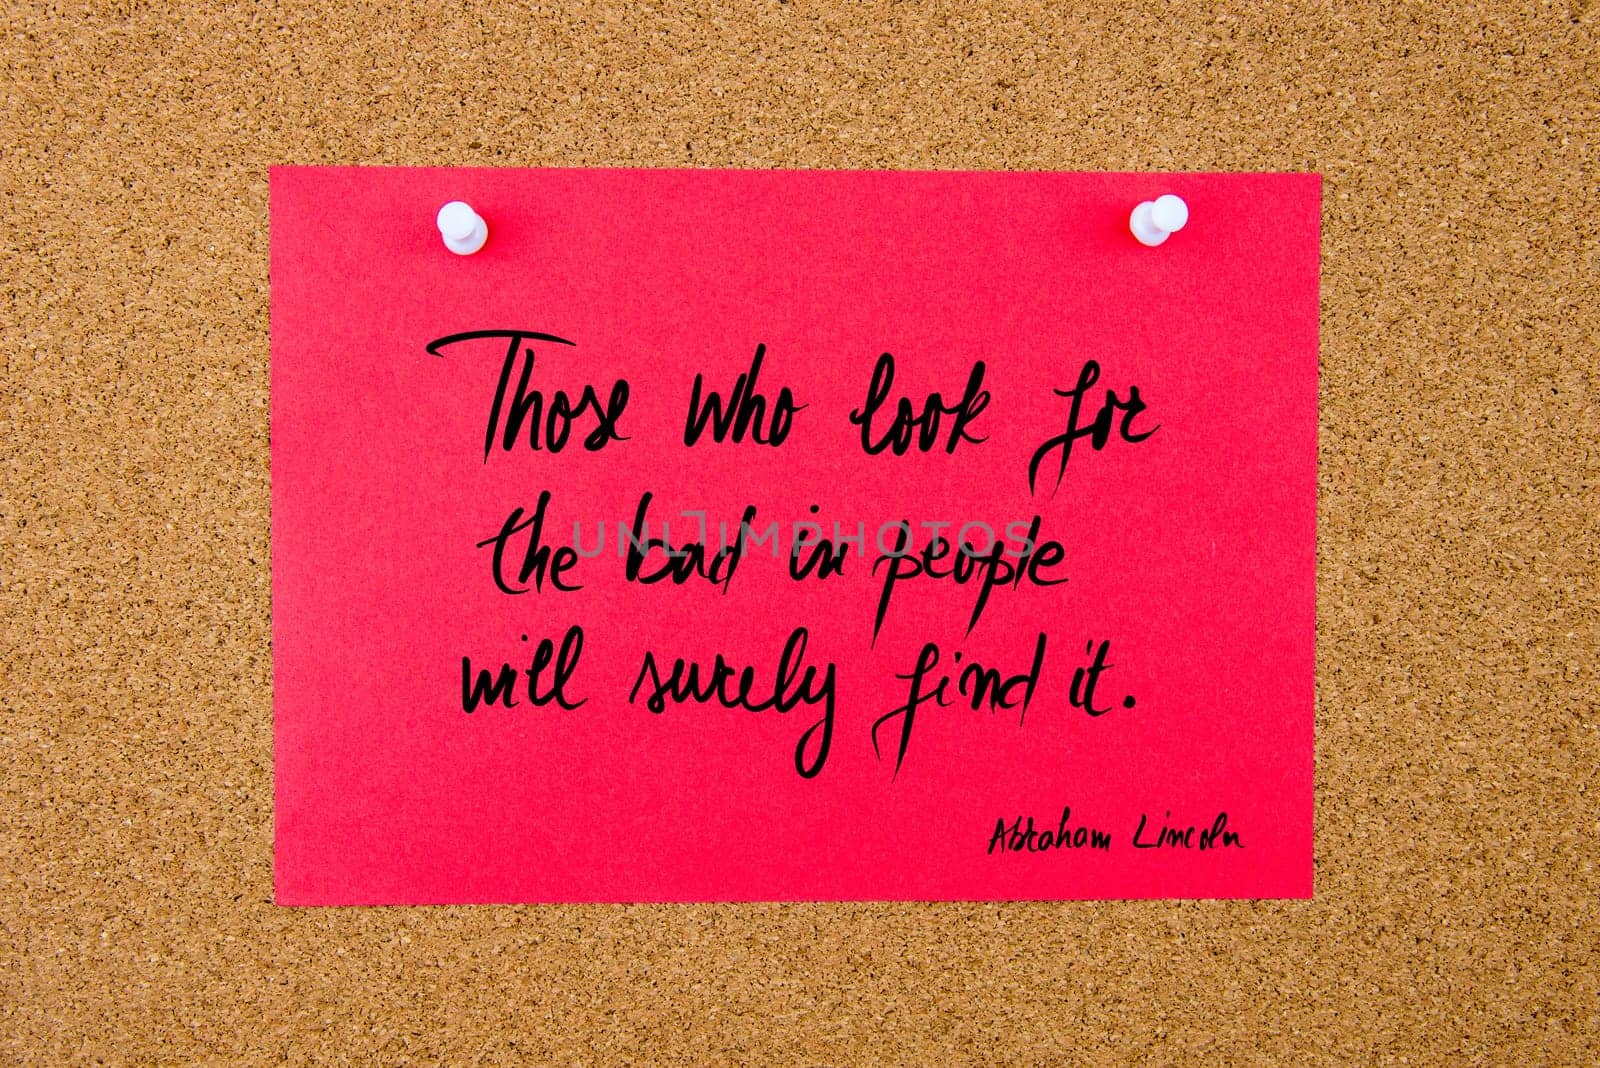 Those who look for
the bad in people
UNLIMPHOTOS
will surely find it.
Abraham Lincoln